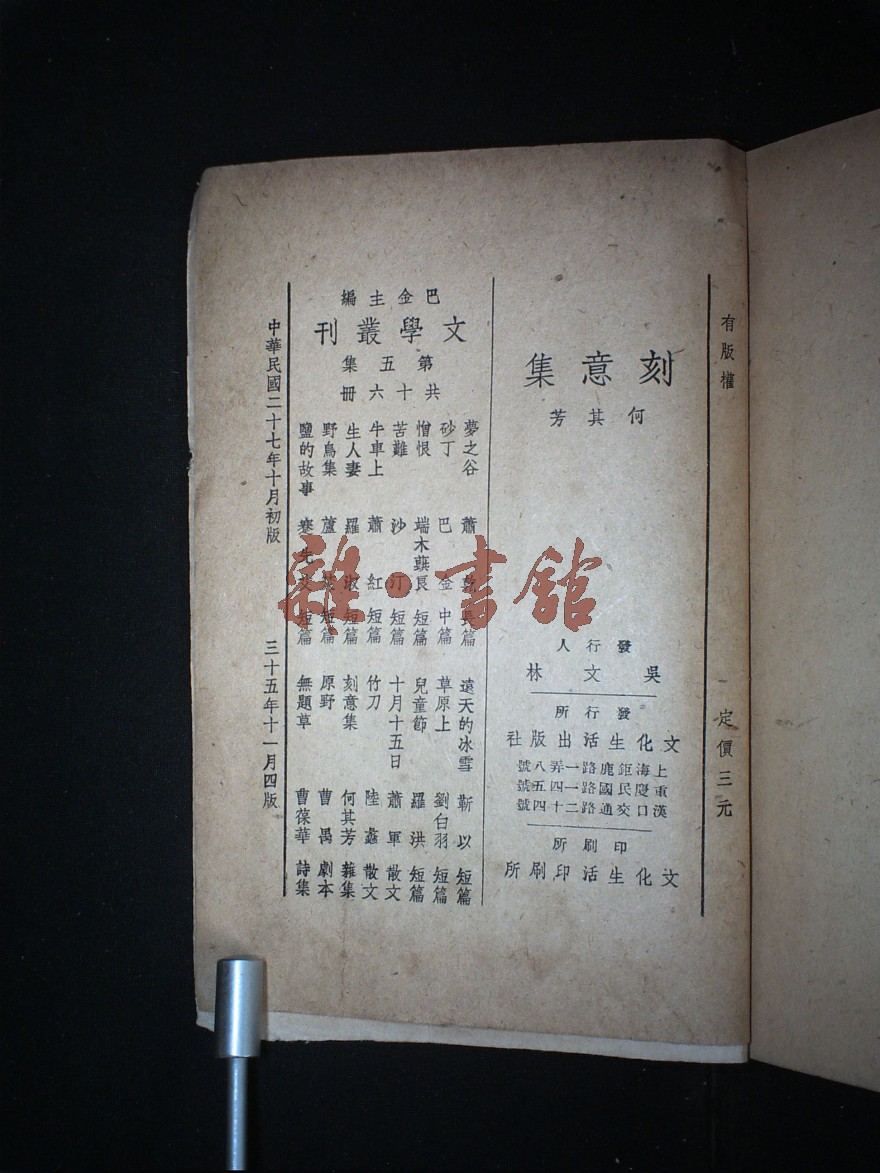 有版權
定價三元
刻意集
何其芳
發行人
吳文林
發行所
文化生活出版社
上海鉅鹿路一弄八號
重慶民國路一四五號
漢口交通路二十四號
印刷所
文化生活印刷所
巴金主編
文學叢刊
第五集
共十六冊
夢之谷 蕭 長篇
砂丁 巴金 中篇
憎恨 端木蕻良 短篇
苦難 沙汀 短篇
牛車上 蕭紅 短篇
生人妻 羅淑 短篇
野鳥集 蘆 短篇
鹽的故事 蹇先 短篇
遠天的冰雪 靳以 短篇
草原上 劉白羽 短篇
兒童節 羅洪 短篇
十月十五日 蕭軍 散文
竹刀 陸蠡 散文
刻意集 何其芳 雜集
原野 曹禺 劇本
無題草 曹葆華 詩集
中華民國二十七年十月初版
三十五年十一月四版
雜·書館